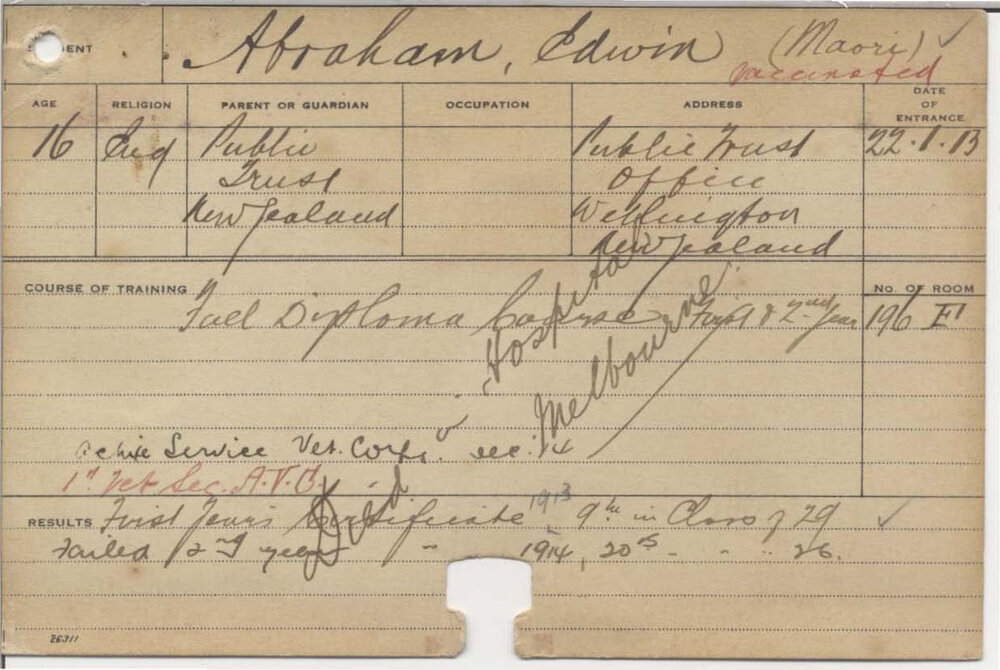 STUDENT Abraham, Edwin (Maori) ✓
vaccinated
AGE RELIGION PARENT OR GUARDIAN OCCUPATION ADDRESS DATE OF ENTRANCE
16 Eng Public Public Trust 22.1.13
Trust Office
New Zealand Wellington
New Zealand
COURSE OF TRAINING No. OF ROOM
Full Diploma Course First & 2nd Year 196 E
Active Service Vet. Corps. Dec. 14
1st Vet Sec. A.V.C.
Died Hospital
Melbourne
RESULTS First Years Certificate 1913 9th in Class of 29 ✓
Failed 2nd year " 1914, 20th " " " 26.
26311